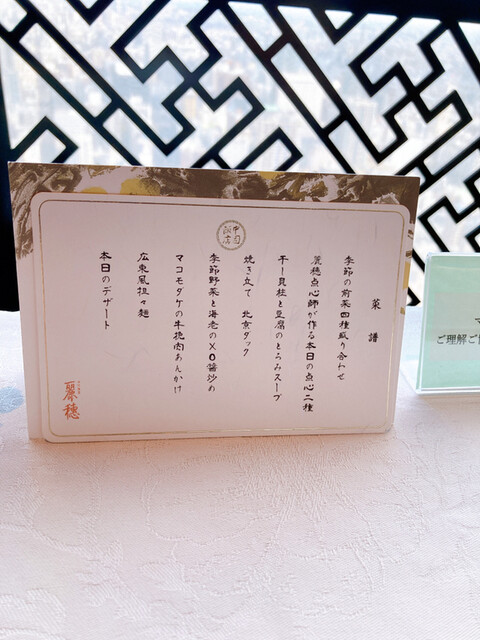 中国飯店
菜譜
季節の前菜四種盛り合わせ
麗穂点心師が作る本日の点心二種
干し貝柱と豆腐のとろみスープ
焼き立て 北京ダック
季節野菜と海老のXO醤炒め
マコモダケの牛挽肉あんかけ
広東風担々麺
本日のデザート
麗穂
ご理解ご